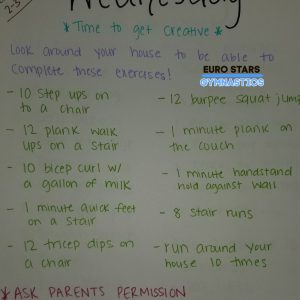 2-3
Wednesday
*Time to get Creative*
Look around your house to be able to
complete these exercises!
EURO STARS
GYMNASTICS
- 10 step ups on
to a chair
- 12 plank walk
ups on a stair
- 10 bicep curl w/
a gallon of milk
- 1 minute quick feet
on a stair
- 12 tricep dips on
a chair
- 12 burpee squat jump
- 1 minute plank on
the couch
- 1 minute handstand
hold against wall
- 8 stair runs
- run around your
house 10 times
*ASK PARENTS PERMISSION